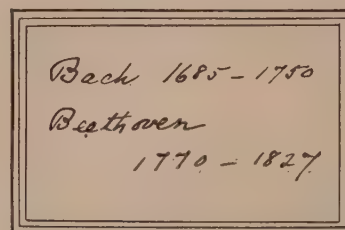 Bach 1685 – 1750
Beethoven
1770 – 1827